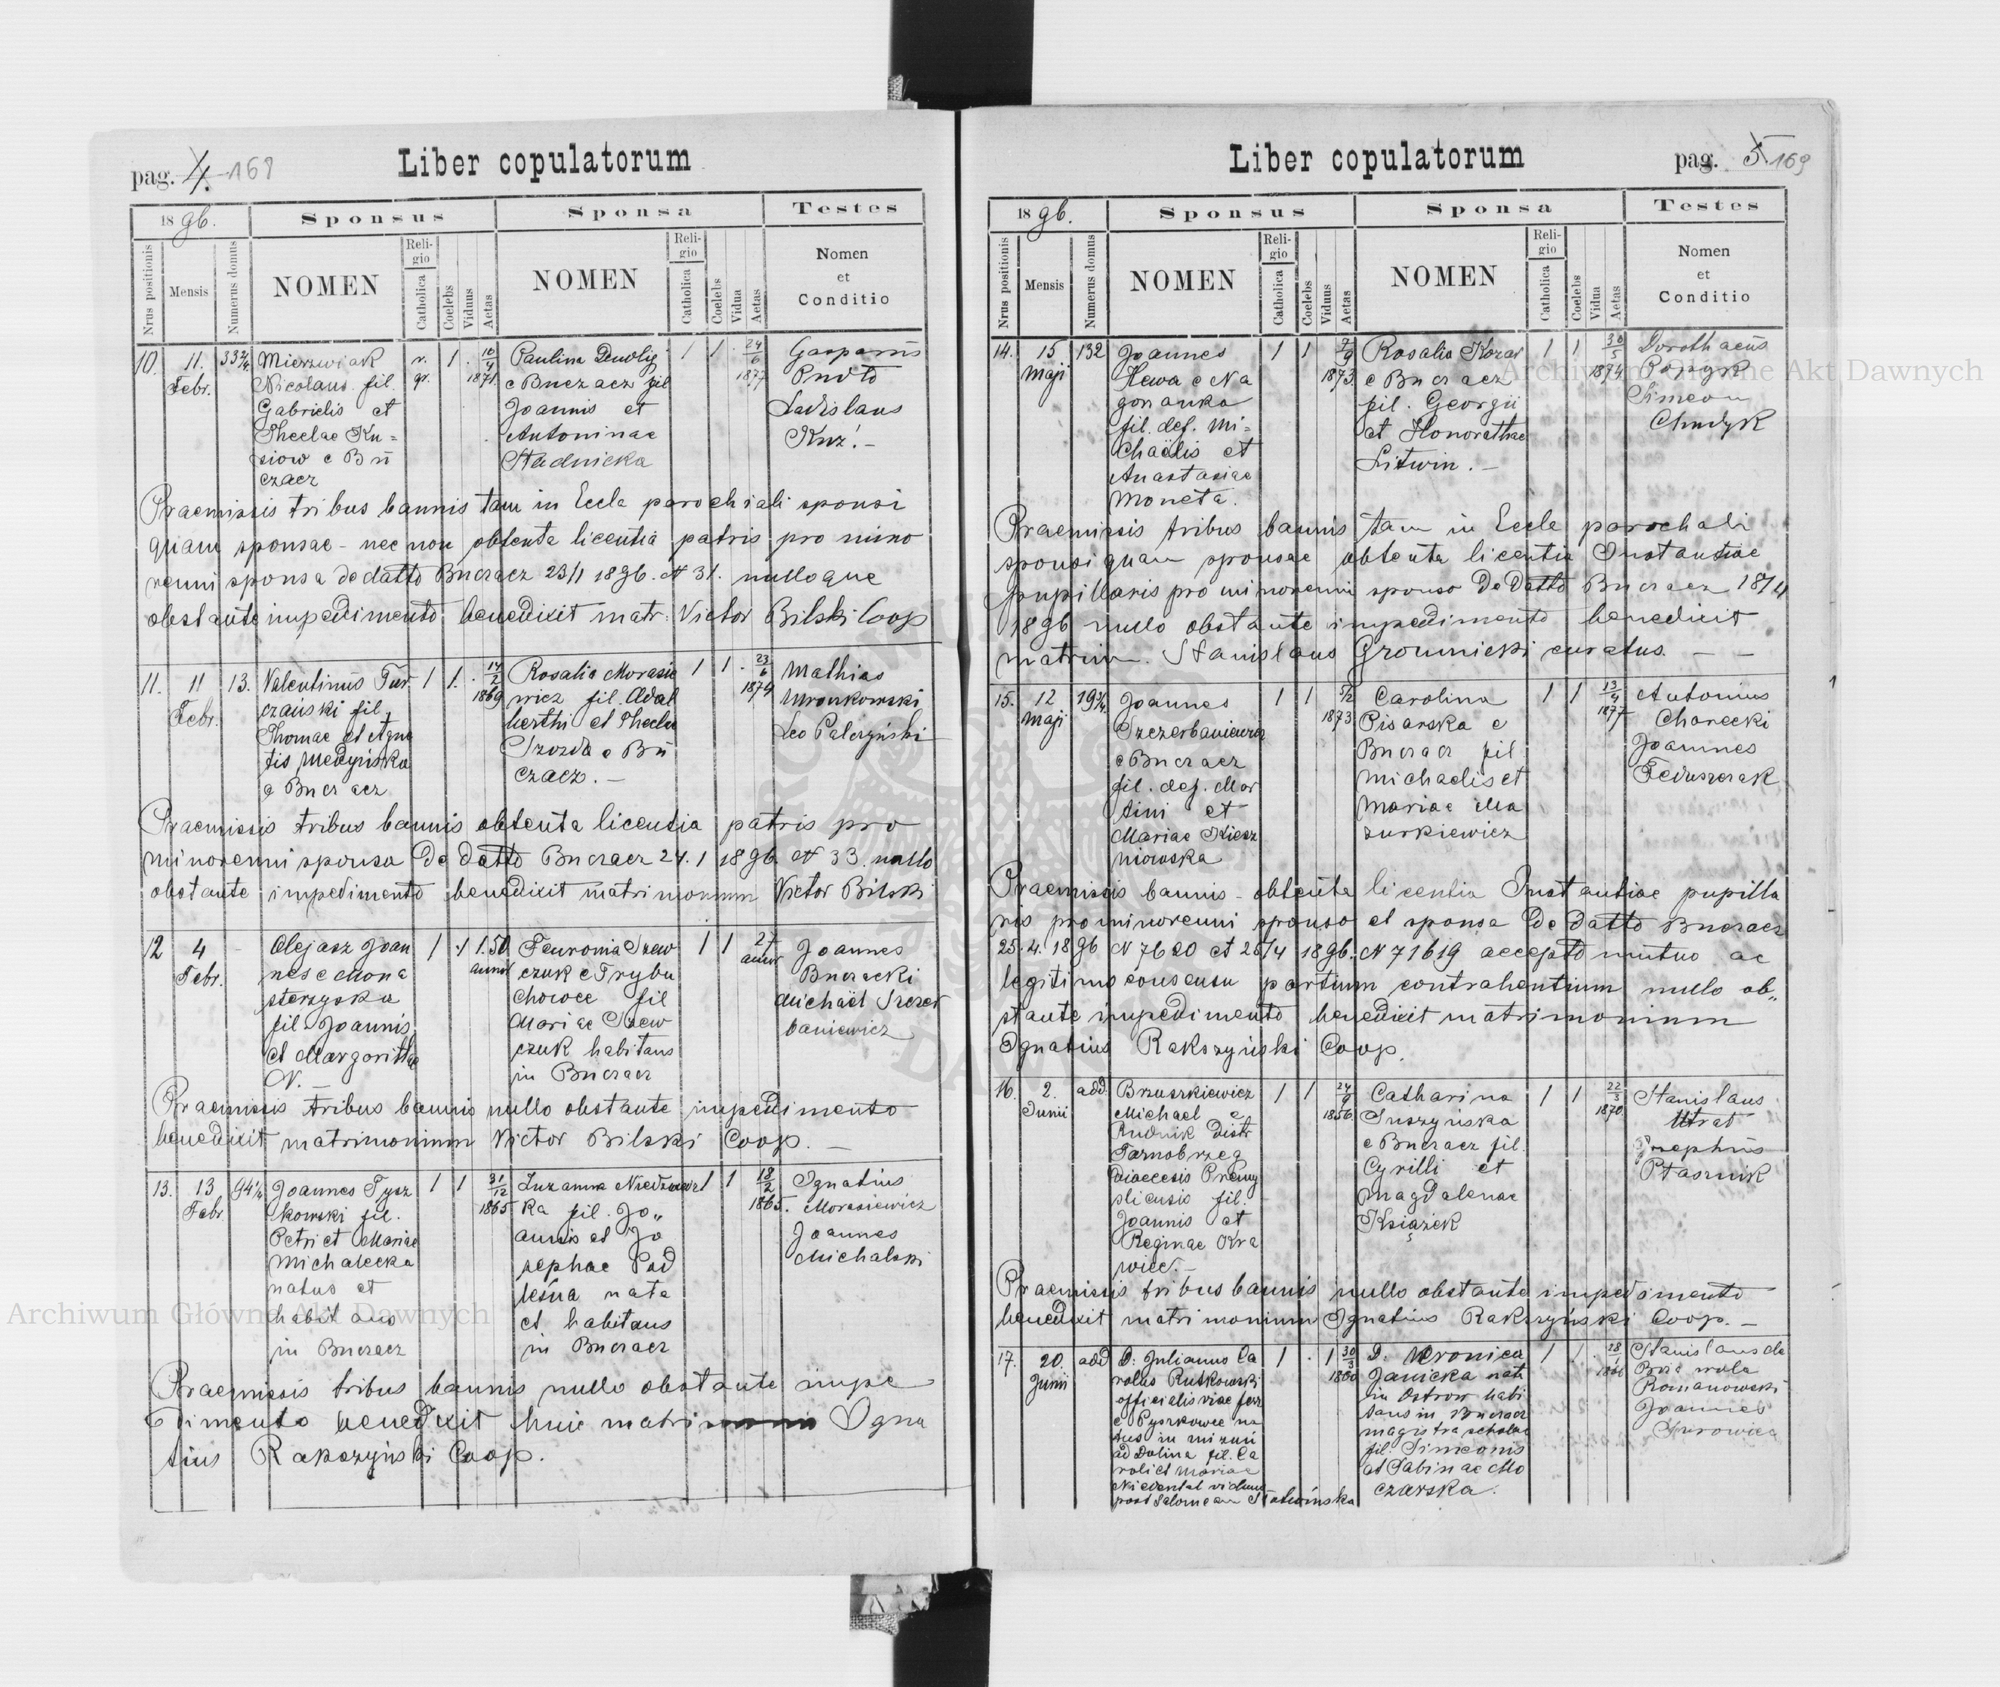 pag. 4. 168
Liber copulatorum
1896.
Sponsus
Sponsa
Testes
Nrus positionis
Mensis
Numerus domus
NOMEN
Religio
Catholica
Coelebs
Viduus
Aetas
NOMEN
Religio
Catholica
Coelebs
Vidua
Aetas
Nomen
et
Conditio
10.
11.
Febr.
Mierzwiak
Nicolaus fil.
Gabrielis et
Theclae Ku=
siow e Bu
czacz
r.
gr.
1
1871.
Paulina
e Buczacz fil
Joannis et
Antoninae
Stadnicka
1 1
24
6
1877
Gasparus
Pudło
Ladislaus
Praemissis tribus bannis tam in Eccla parochiali sponsi
quam sponsae - nec non obtenta licentia patris pro mino
renni sponsa de datto Buczacz 23/1 1896. N 31. nulloque
obstante impedimento benedixit matr. Victor Bilski Coop
11.
11
Febr.
13.
Valentinus Tur
czański fil.
Thomae et Agne
tis Medyńska
e Buczacz
1 1.
14
2
1869
Rosalia Morasie
wicz fil. Adal
berthi et Theclae
e Bu
czacz. -
1 1
23
6
1874
Mathias
Mronkowski
Leo Palczyński
Praemissis tribus bannis obtenta licentia patris pro
minorenni sponsa de datto Buczacz 24.1 1896 N 33. nullo
obstante impedimento benedixit matrimonium Victor Bilski
12
4
Febr.
-
Olejasz Joan
nes e Mona
sterzyska
fil. Joannis
et Margarithae
N. -
1 1 1. 50
annor
Feuronia Szew
czuk e Trybu
chowce fil
Mariae Szew
czuk habitans
in Buczacz
1 1
27
annor
Joannes
Buczacki
Michael Szczer
baniewicz
Praemissis tribus bannis nullo obstante impedimento
benedixit matrimonium Victor Bilski Coop. -
13.
13
Febr.
94
Joannes Tysz
kowski fil.
Petri et Mariae
Michalecka
natus et
habitans
in Buczacz
1 1
31
12
1865
Zuzanna Niedzwiedz
ka fil. Jo„
annis et Jo
sephae Pod
leśna nata
et habitans
in Buczacz
1 1
18
2
1865.
Ignatius
Morasiewicz
Joannes
Michalski
Praemissis tribus bannis nullo obstante impe
dimento benedixit huic matrimonio Igna
tius Rakszyński Coop.
pag. 5 169
Liber copulatorum
1896.
Sponsus
Sponsa
Testes
Nrus positionis
Mensis
Numerus domus
NOMEN
Religio
Catholica
Coelebs
Viduus
Aetas
NOMEN
Religio
Catholica
Coelebs
Vidua
Aetas
Nomen
et
Conditio
14.
15
Maji
132
Joannes
Hewa e Na
gorzanka
fil. def. Mi=
chaëlis et
Anastasiae
Moneta.
1 1
7
9
1873.
Rosalia Kozar
e Buczacz
fil. Georgii
et Honorathae
Litwin. -
1 1
30
5
1874
Dorotheus
Papyk
Simeon
Chudyk
Praemissis tribus bannis tam in Eccle parochali
sponsi quam sponsae obtenta licentia Instantiae
pupillaris pro minorenni sponso de datto Buczacz 18/4
1896 nullo obstante impedimento benedixit
matrim. Stanislaus Gromnicki curatus. - -
15.
12
Maji
Joannes
Szczerbaniewicz
e Buczacz
fil. def. Mar
tini et
Mariae Kiesz
niowska
1 1
1873.
Carolina
Pisarska e
Buczacz fil
Michaelis et
Mariae Ma
zurkiewicz
1 1
13
4
1877
Antonius
Charecki
Joannes
Feduszczak
Praemissis bannis - obtenta licentia Instantiae pupilla
ris pro minorenni sponso et sponsa de datto Buczacz
25.4.1896 N 7620 et 25/4 1896. N 71619 accepto mutuo ac
legitimo consensu partium contrahentium nullo ob„
stante impedimento benedixit matrimonium
Ignatius Rakszyński Coop.
16.
2.
Junii
add.
Brzuszkiewicz
Michael e
Rudnik distr
Tarnobrzeg
Diaecesis Premy
sliensis fil.
Joannis et
Reginae Okra
wiec. -
1 1
24
9
1856.
Catharina
Suszyńska
e Buczacz fil.
Cyrilli et
Magdalenae
Książek
1 1
22
3
1870.
Stanislaus
Utrat
Josephus
Ptasznik
Praemissis tribus bannis nullo obstante impedimento
benedixit matrimonium Ignatius Rakszyński Coop. -
17.
20.
Junii
add
D. Julianus Ca
rolus Rutkowski
officialis viae ferr
e Pyszkowce na
tus in Mizuń
ad Dolina fil. Ca
roli et Mariae
Niedental viduus
post Salomeam Statwińska
1 . 1
30
3
1860
D. Veronica
Janicka nata
in Ostrow habi
tans in Buczacz
magistra scholae
fil. Simeonis
et Sabinae Mo
czarska.
1 1 .
28
1
1866
Stanislaus de
Boża wola
Romanowski
Joannes
Surowica
Archiwum Główne Akt Dawnych
Archiwum Główne Akt Dawnych